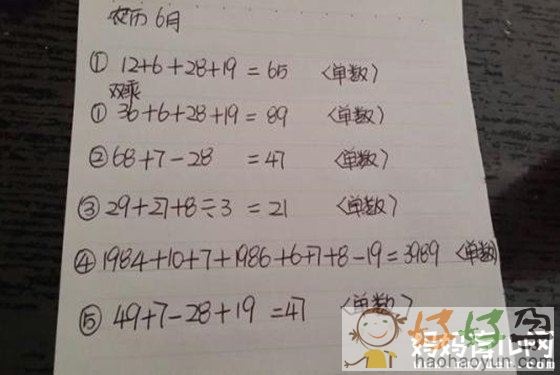 农历6月
① 12+6+28+19=65 〈单数〉
双乘
① 36+6+28+19=89 〈单数〉
② 68+7-28 =47 〈单数〉
③ 29+27+8÷3 =21 〈单数〉
④ 1984+10+7+1986+6+7+8-19=3989 〈单数〉
⑤ 49+7-28+19 =47 〈单数〉
好好孕
妈妈育儿网
haohaoyun.com